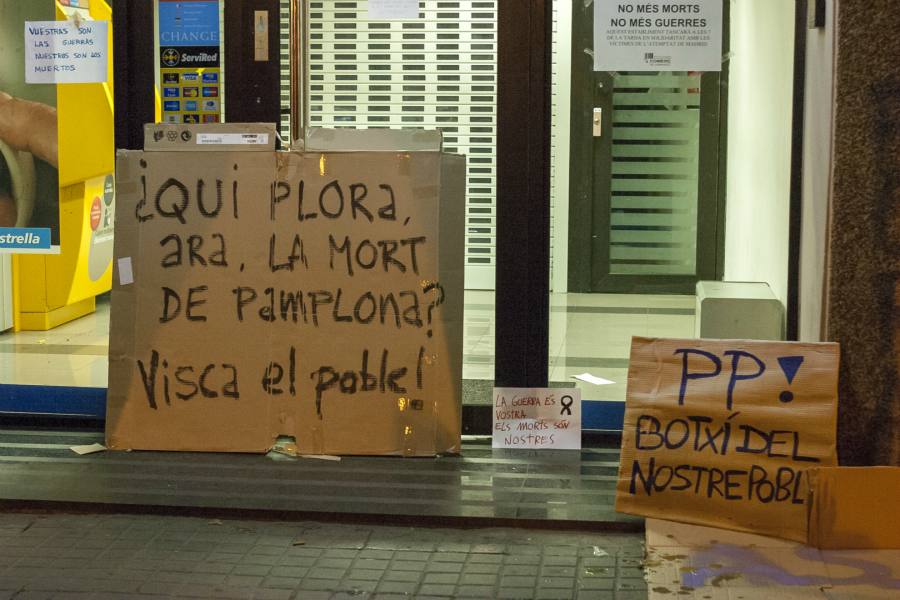 VUESTRAS SON
LAS GUERRAS
NUESTROS SON LOS
MUERTOS
CHANGE
ServiRed
VISA
strella
NO MÉS MORTS
NO MÉS GUERRES
AQUEST ESTABLIMENT TANCARÀ A LES 7
DE LA TARDA EN SOLIDARITAT AMB LES
VÍCTIMES DE L'ATEMPTAT DE MADRID
¿QUI PLORA,
ARA, LA MORT
DE PAMPLONA?
Visca el poble!
LA GUERRA ÉS
VOSTRA
ELS MORTS SÓN
NOSTRES
PP!
BOTXÍ DEL
NOSTRE POBL